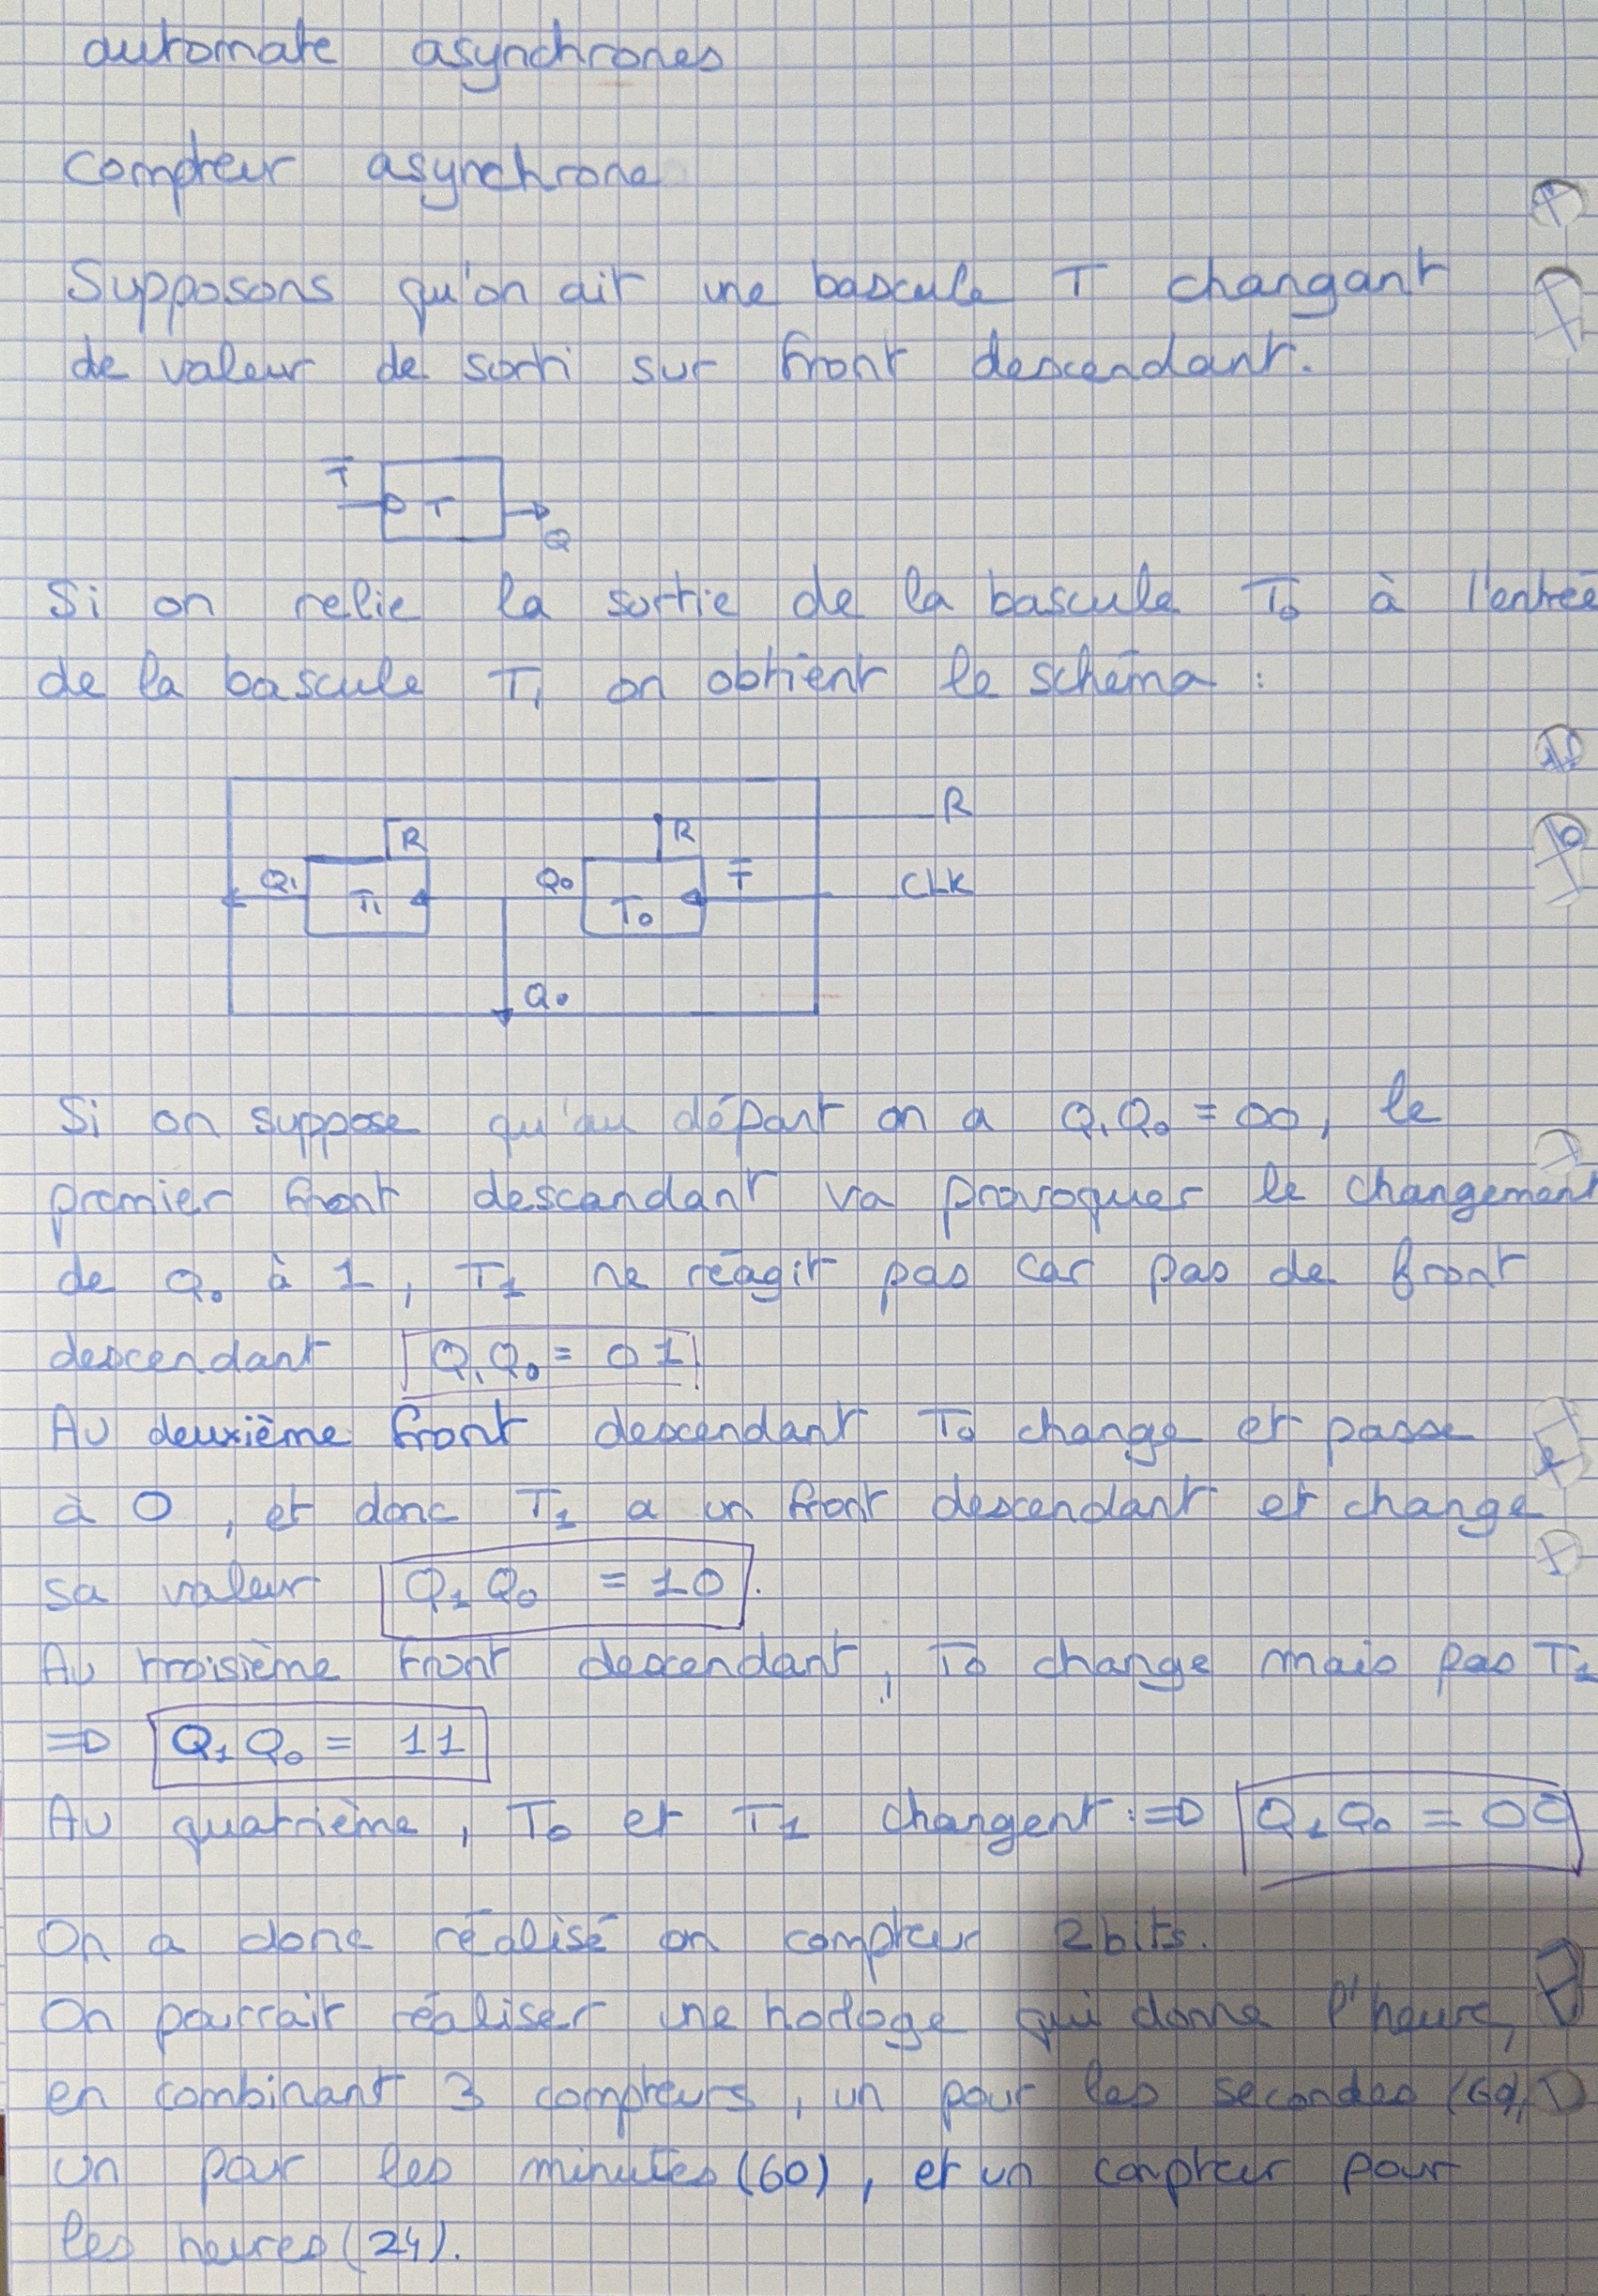 automate asynchrones
Compteur asynchrone
Supposons qu'on ait une bascule T changant
de valeur de sorti sur front descendant.
T̅
T
Q
Si on relie la sortie de la bascule T₀ à l'entrée
de la bascule T₁ on obtient le schéma :
R
R R
Q₁ T₁ Q₀ T₀ T̅ CLK
Q₀
Si on suppose qu'au départ on a Q₁Q₀ = 00, le
premier front descandant va provoquer le changement
de Q₀ à 1, T₁ ne réagit pas car pas de front
descendant Q₁Q₀ = 01
Au deuxième front descendant T₀ change et passe
à 0, et donc T₁ a un front descendant et change
sa valeur Q₁Q₀ = 10.
Au troisième front descendant, T₀ change mais pas T₁
=> Q₁Q₀ = 11
Au quatrième, T₀ et T₁ changent : => Q₁Q₀ = 00
On a donc réalisé on compteur 2bits.
On pourrait réaliser une horloge qui donne l'heure,
en combinant 3 compteurs, un pour les secondes (60),
un pour les minutes (60), et un compteur pour
les heures (24).